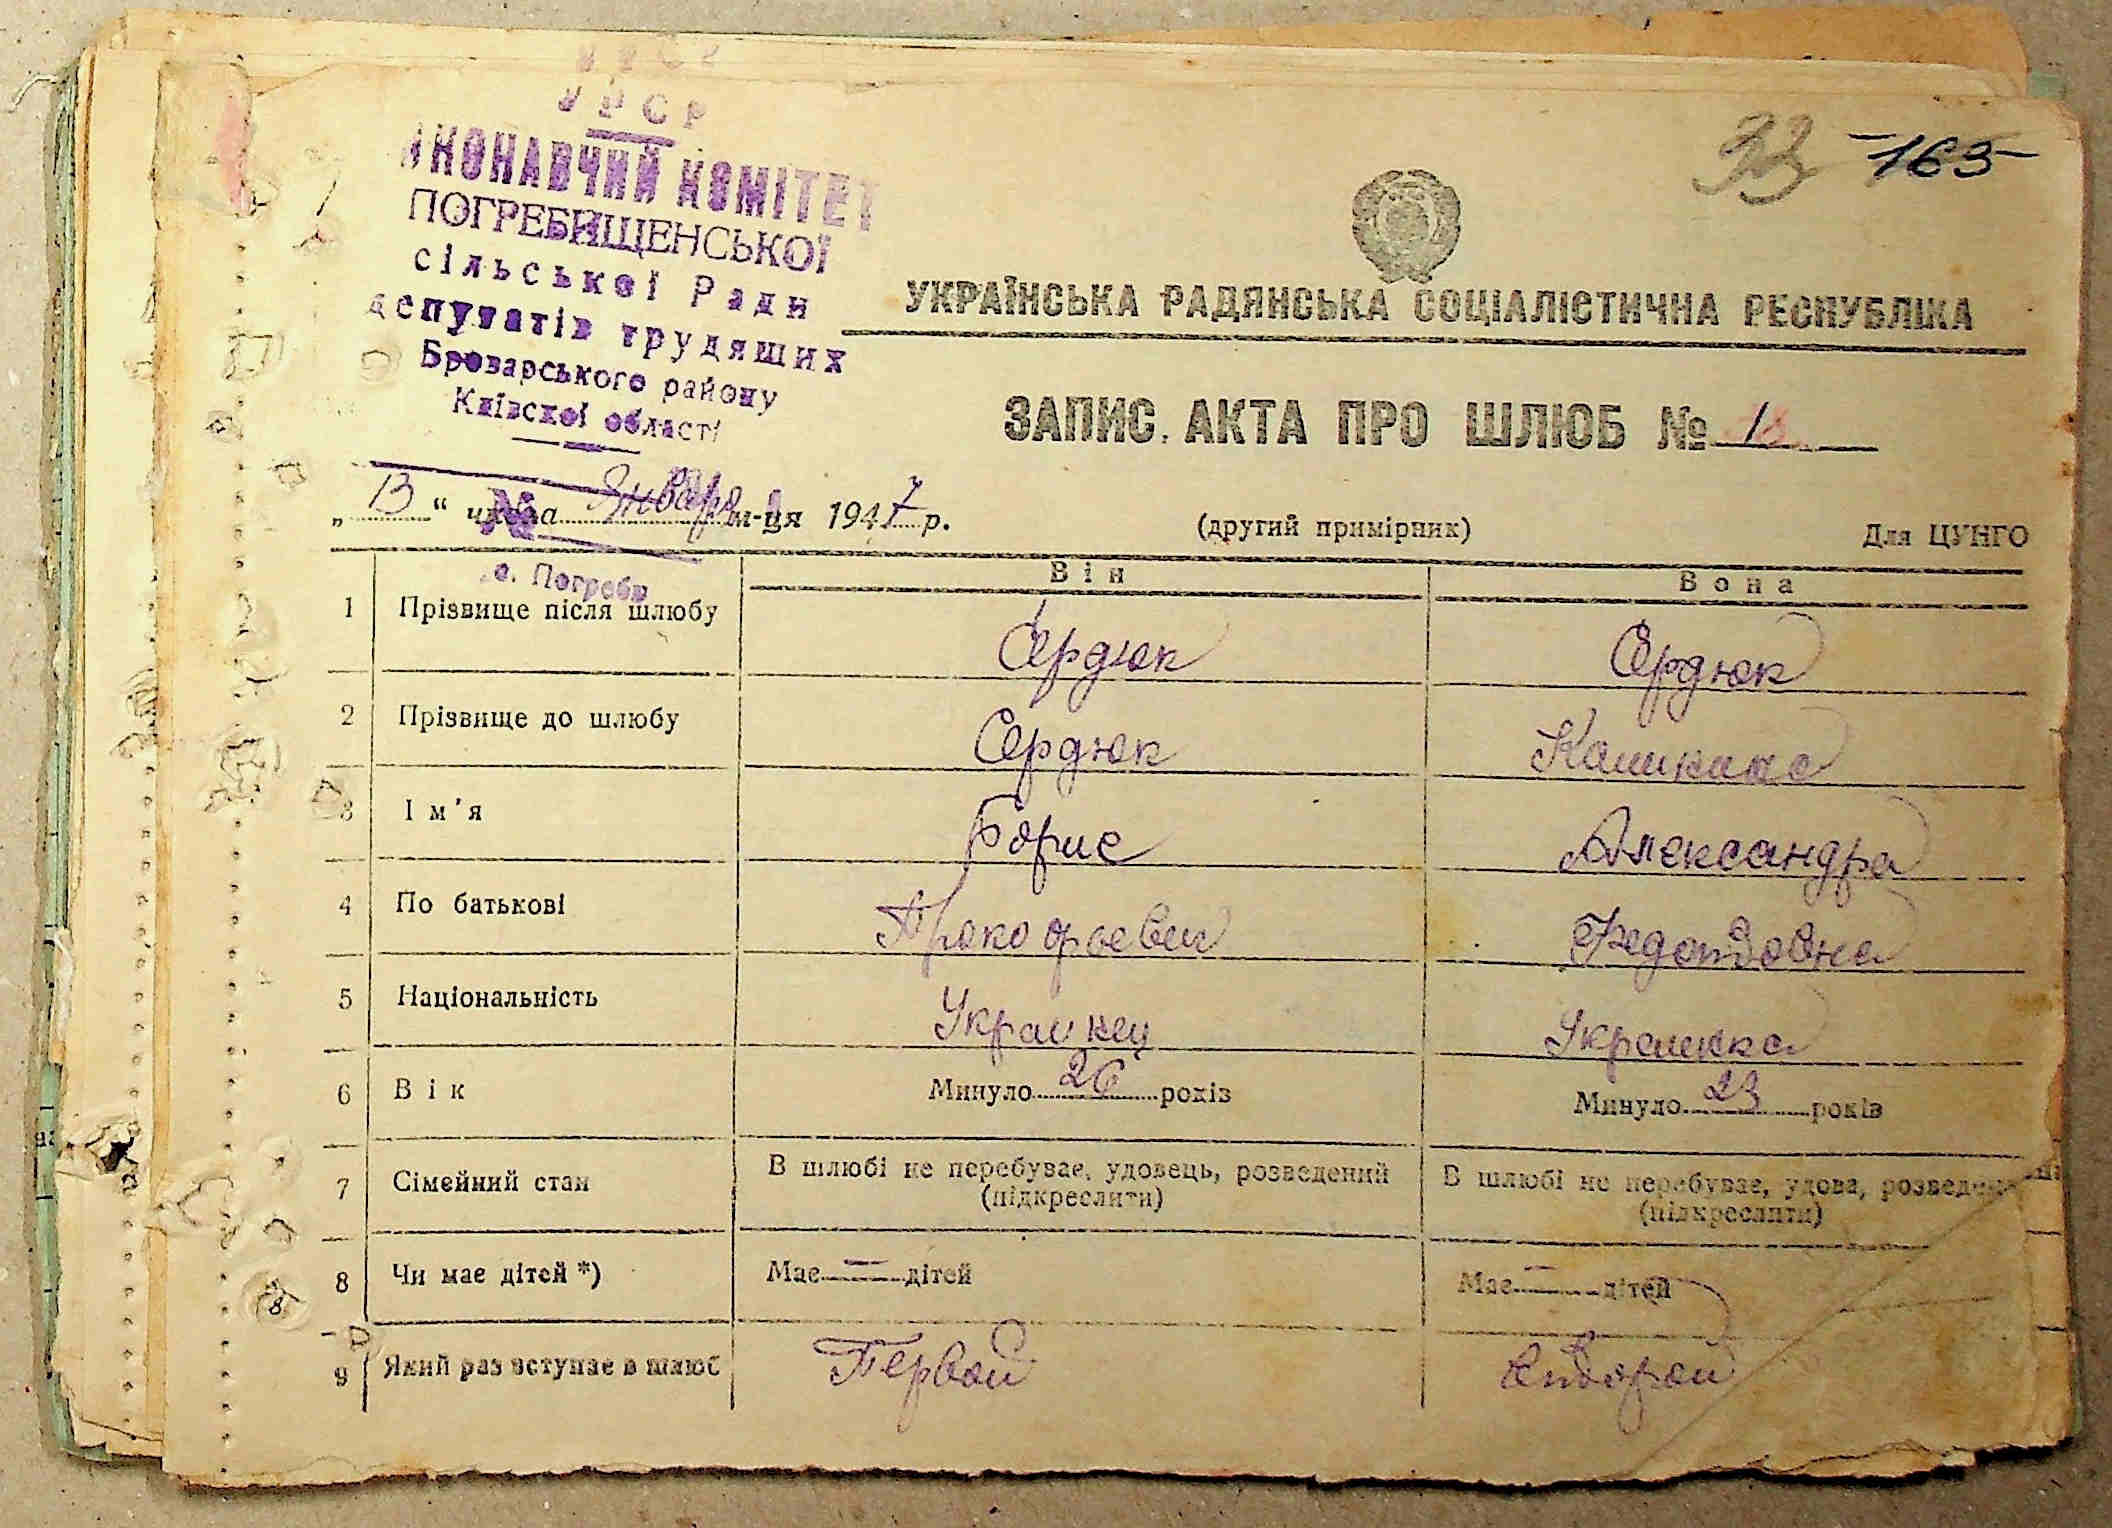 УРСР
УРСР
ИКОНАВЧИЙ КОМІТЕТ
ПОГРЕБИЩЕНСЬКОЇ
сільської Ради
депутатів трудящих
Броварського району
Київської області
33 -163-
УКРАЇНСЬКА РАДЯНСЬКА СОЦІАЛІСТИЧНА РЕСПУБЛІКА
ЗАПИС АКТА ПРО ШЛЮБ № 1
„13“ числа Января м-ця 1947 р.
№
(другий примірник)
Для ЦУНГО
с. Погреби
Він Вона
1 Прізвище після шлюбу Сердюк Сердюк
2 Прізвище до шлюбу Сердюк
3 Ім'я Борис Александра
4 По батькові Прокофьевич Федотовна
5 Національність Украинец Украинка
6 Вік Минуло 26 років Минуло 23 років
7 Сімейний стан В шлюбі не перебуває, удовець, розведений В шлюбі не перебуває, удова, розведена
(підкреслити) (підкреслити)
8 Чи має дітей *) Має — дітей Має — дітей
9 Який раз вступає в шлюб Первой Второй